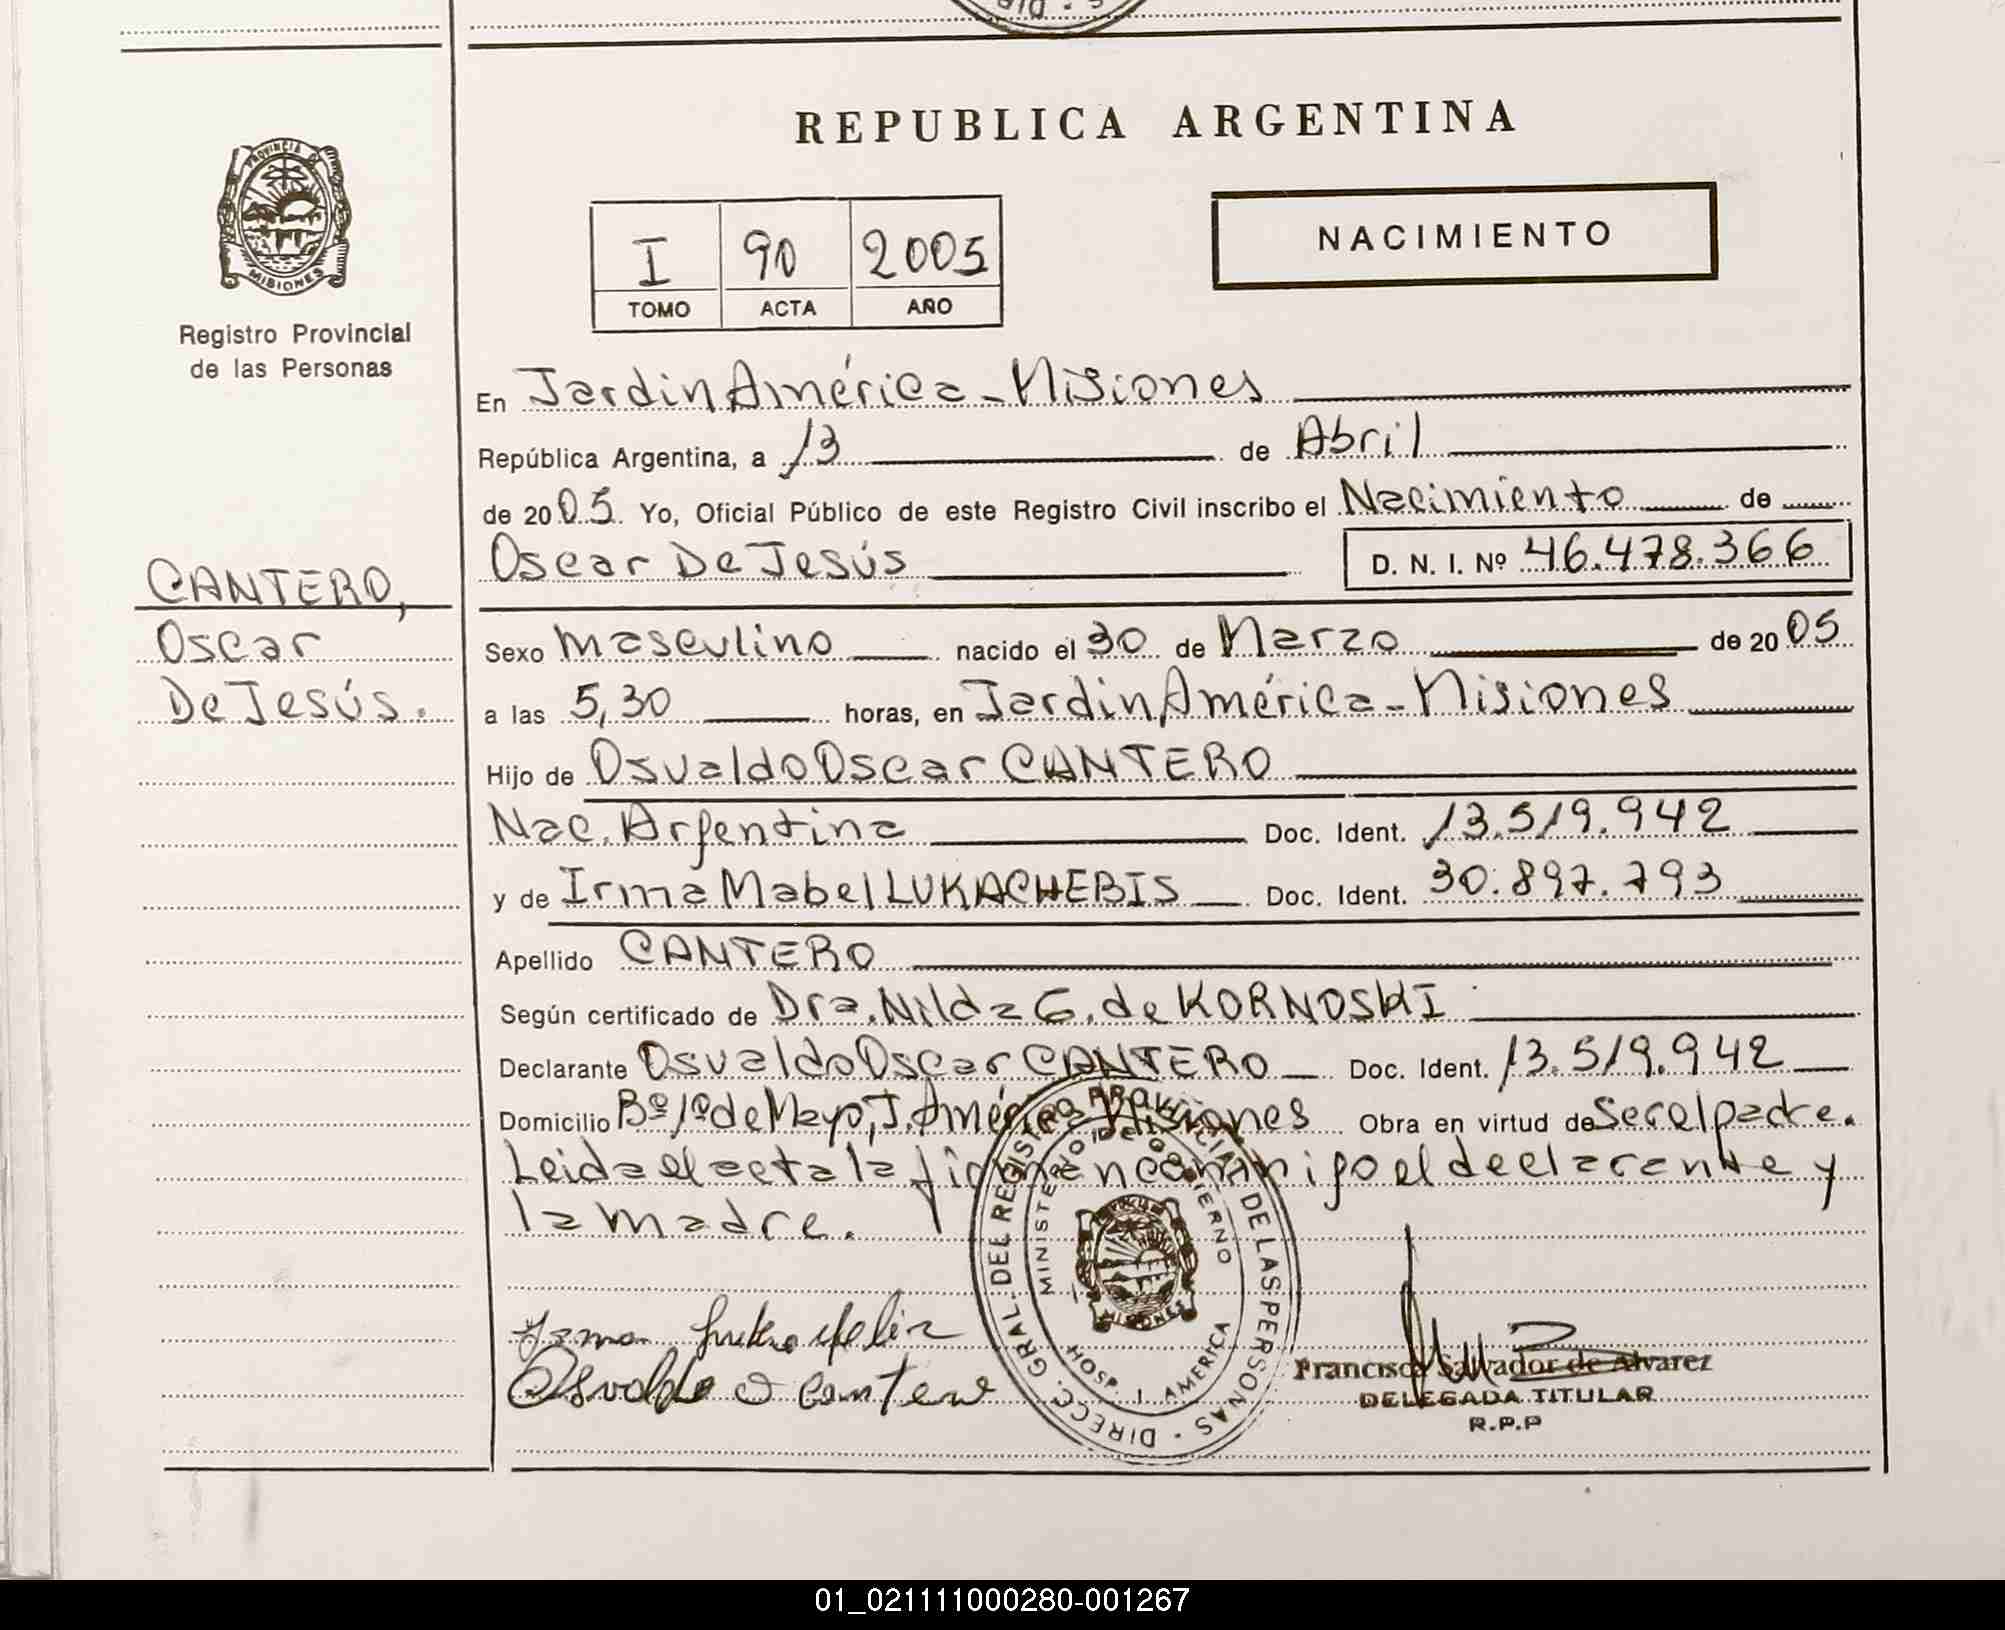 REPUBLICA ARGENTINA
PROVINCIA DE
MISIONES
Registro Provincial
de las Personas
I 90 2005
TOMO ACTA AÑO
NACIMIENTO
En Jardin América - Misiones
República Argentina, a 13 de Abril
de 2005. Yo, Oficial Público de este Registro Civil inscribo el Nacimiento de
Oscar De Jesús D. N. I. Nº 46.478.366
CANTERO,
Oscar
De Jesús.
Sexo Masculino nacido el 30 de Marzo de 2005
a las 5,30 horas, en Jardin América - Misiones
Hijo de Osvaldo Oscar CANTERO
Nac. Argentina Doc. Ident. 13.519.942
y de Irma Mabel LUKACHEBIS Doc. Ident. 30.897.793
Apellido CANTERO
Según certificado de Dra. Nilda G. de KORNOSKI
Declarante Osvaldo Oscar CANTERO Doc. Ident. 13.519.942
Domicilio Bº 1º de Mayo, J. América Misiones Obra en virtud de Ser el padre.
Leida el acta la firman conmigo el declarante y
la madre.
DIRECC. GRAL. DEL REGISTRO PROVINCIAL DE LAS PERSONAS
MINISTERIO DE GOBIERNO
MISIONES
HOSP. J. AMERICA
Irma
Osvaldo O Cantero
Francisca Salvador de Alvarez
DELEGADA TITULAR
R.P.P
01_021111000280-001267